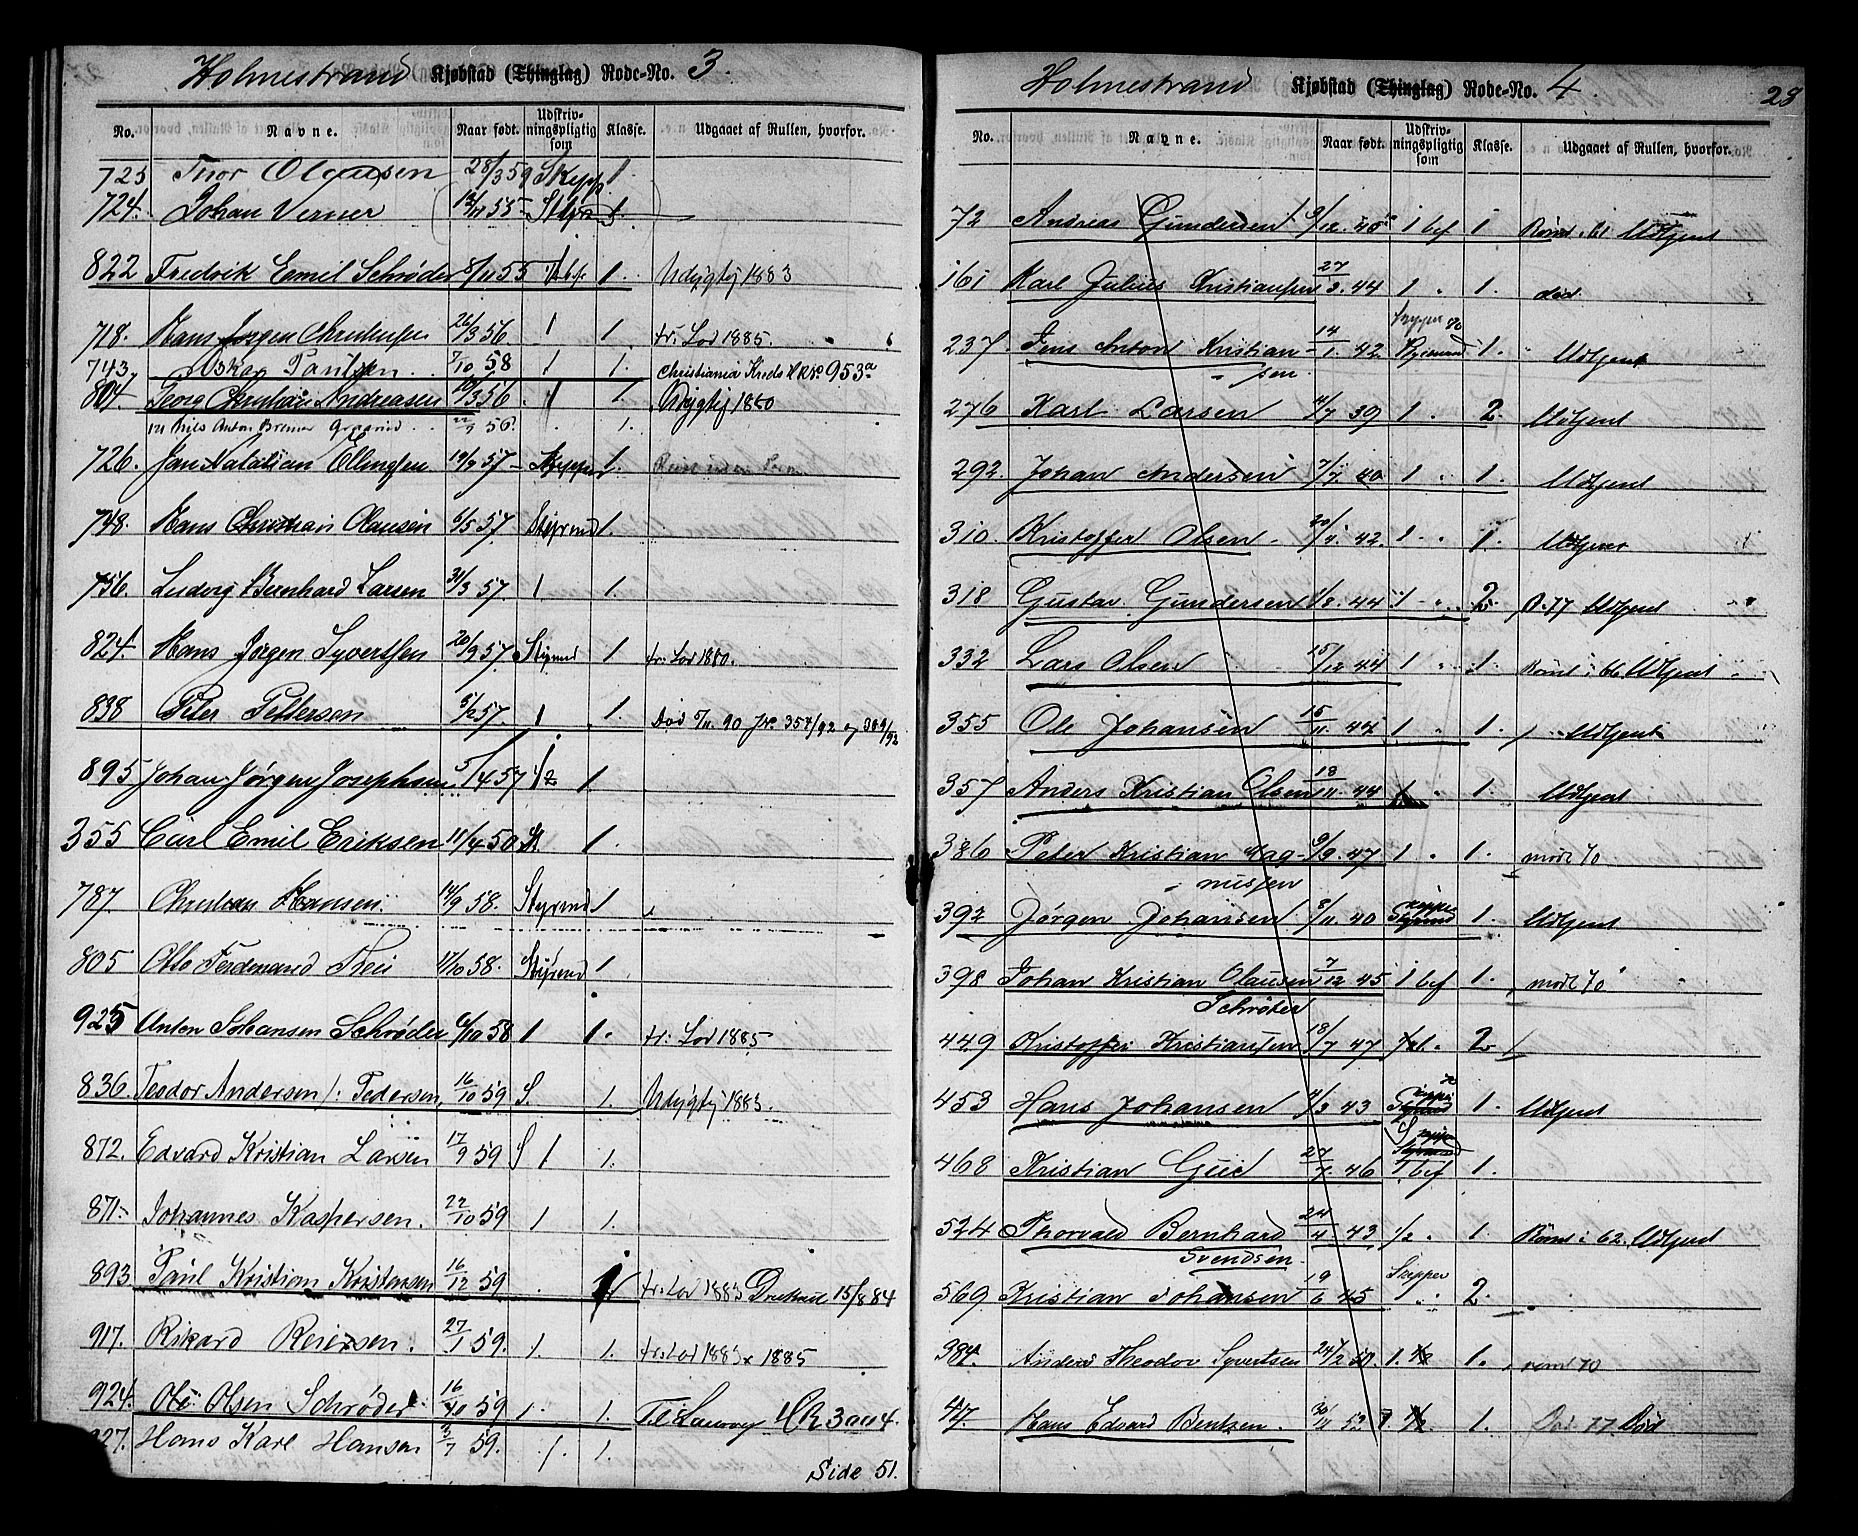 Holmestrand Kjøbstad (Thinglag) Rode-No. 3.
No. Navne. Naar født. Udskriv-ningspligtig som Klasse. Udgaaet af Rullen, hvorfor.
725 Thor Olausen 28/3 59 Skipp 1
724. Johan Verner 55 1.
822 Fredrik Emil Schrøder 8/11 55 1/2 bef 1. Udygtig 1883
718. Hans Jørgen Christensen 26/3 56 1 1. fr. Lod 1885.
743. Oskar Paulsen 7/10 58 1 1. Christiania Kreds HR No 953a
804. Georg Christian Andreasen 10/3 56 1 1. Udygtig 1880
Nils Anton Bremer 56. 1.
726. Jan Natalian Ellingsen 19/9 57 Skipper 1.
748. Hans Christian Olausen 6/5 57 Styrmd 1.
756. Ludvig Bernhard Larsen 31/3 57. 1 1.
824. Hans Jørgen Syvertsen 20/9 57 Styrmd 1 fr. Lod 1880.
838 Peter Pettersen 5/2 57. 1 1. Død 5/11 90 Jr. 357/92 og 389/92
895 Johan Jørgen Josephsen 5/4 57 1/2 1
355 Carl Emil Eriksen 11/4 50 St 1.
787. Christian Hansen. 14/9 58. Styrmd 1
805 Otto Ferdinand 17/10 58. Styrmd 1
925 Anton Johansen Schrøder 6/10 58 1 1. fr. Lod 1885
836. Teodor Andersen /: Pedersen, 16/10 59 S. 1. Udygtig 1883.
872. Edvard Kristian Larsen 17/9 59 S 1 1.
871. Johannes Kaspersen. 22/10 59 1 1.
893. Paul Kristian Kristensen 16/12 59 1 fr. Lod 1883 15/8 84
917. Rikard Reiersen. 27/1 59. 1. 1. fr. Lod 1883 x 1885
924. Ole Olsen Schrøder 16/10 59 1. 1. Til Laurvig HR 3 an 4.
927. Hans Karl Hansen 3/7 59. 1. 1.
Side 51.
Holmestrand Kjøbstad (Thinglag) Rode-No. 4. 28
No. Navne. Naar født. Udskriv-ningspligtig som Klasse. Udgaaet af Rullen, hvorfor.
72 Andreas Gundersen 9/12. 40 1 bef 1 Rømt i 61 Udtjent
161 Karl Julius Kristiansen 27/3. 44 1 " 1. død.
237 Jens Anton Kristian-sen 14/1. 42. Skipper 70 Styrmand 1. Udtjent
276 Karl Larsen 11/7 39 1 . 2. Udtjent
292. Johan Andersen 7/7. 40 1 " 1. Udtjent
310. Kristoffer Olsen 20/11. 42. 1 " 1. Udtjent
318 Gustav Gundersen 1/8. 44 1 " 2. R. 77 Udtjent
332 Lars Olsen 15/12 44 1 " 1. Rømt i 66 Udtjent
355 Ole Johansen 15/11. 42 1 " 1. Udtjent
357 Anders Kristian Olsen 18/11. 44 1 " 1. Udtjent
386 Peter Kristian Mag-nussen 9/9. 47 1 " 1. mødt 70
392 Jørgen Johansen 8/11. 40 Skipper Styrmd 1. Udtjent
398 Johan Kristian Olausen Schrøder 7/12 45 1 bef 1. mødt 70
449 Kristoffer Kristiansen 18/7 47 2.
453 Hans Johansen 11/3 43 Skipper 70 Styrmand 1. Udtjent
468 Kristian Guie 27/7. 46 Skipper Styrmand 1 bef 1.
524 Thorvald Bernhard Svendsen 24/4 43 1/2 " 1. Rømt i 62. Udtjent
569 Kristian Johansen 19/6 45 Skipper 1 " 2.
384. Anders Theodor Syvertsen 24/2 50. 1. 1/2 1. rømt 70
47. Hans Edvard Bentzen. 30/11 52 1/2 1. Død 77 Død